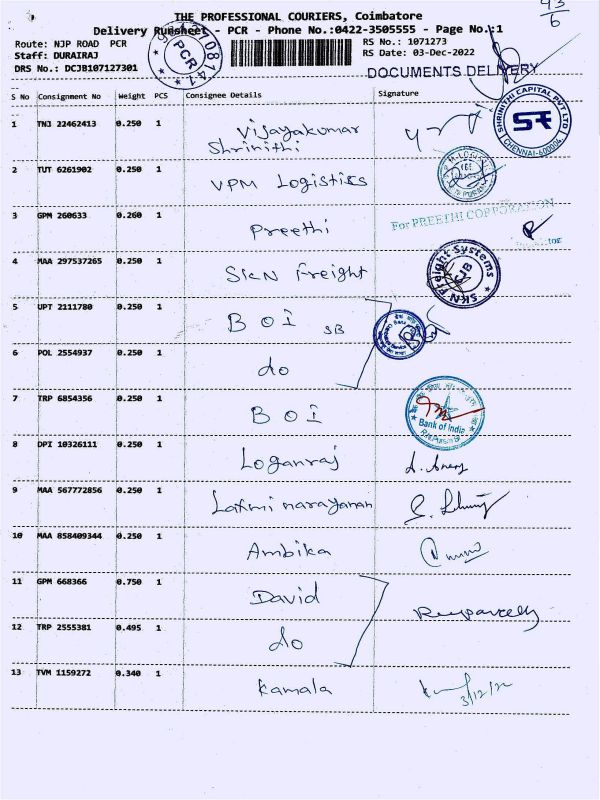 93
6
THE PROFESSIONAL COURIERS, Coimbatore
Delivery Runsheet - PCR - Phone No.:0422-3505555 - Page No.:1
Route: NJP ROAD PCR
Staff: DURAIRAJ
DRS No.: DCJB107127301
PCR
RS No.: 1071273
RS Date: 03-Dec-2022
DOCUMENTS DELIVERY
S No Consignment No Weight PCS Consignee Details Signature
1 TNJ 22462413 0.250 1 Vijayakumar
Shrinithi
SHRINITHI CAPITAL PVT LTD
CHENNAI-600004
2 TUT 6261902 0.250 1 VPM Logistics
3 GPM 260633 0.260 1 Preethi
For PREETHI CORPORATION
4 MAA 297537265 0.250 1 SKN Freight
SKN Freight Systems
CJB
5 UPT 2111780 0.250 1 BOI SB
6 POL 2554937 0.250 1 do
7 TRP 6854356 0.250 1 BOI
Bank of India
8 DPI 10326111 0.250 1 Loganraj
9 MAA 567772856 0.250 1 Laxmi narayanan
10 MAA 858409344 0.250 1 Ambika
11 GPM 668366 0.750 1 David
12 TRP 2555381 0.495 1 do
13 TVM 1159272 0.340 1 Kamala
3/12/22